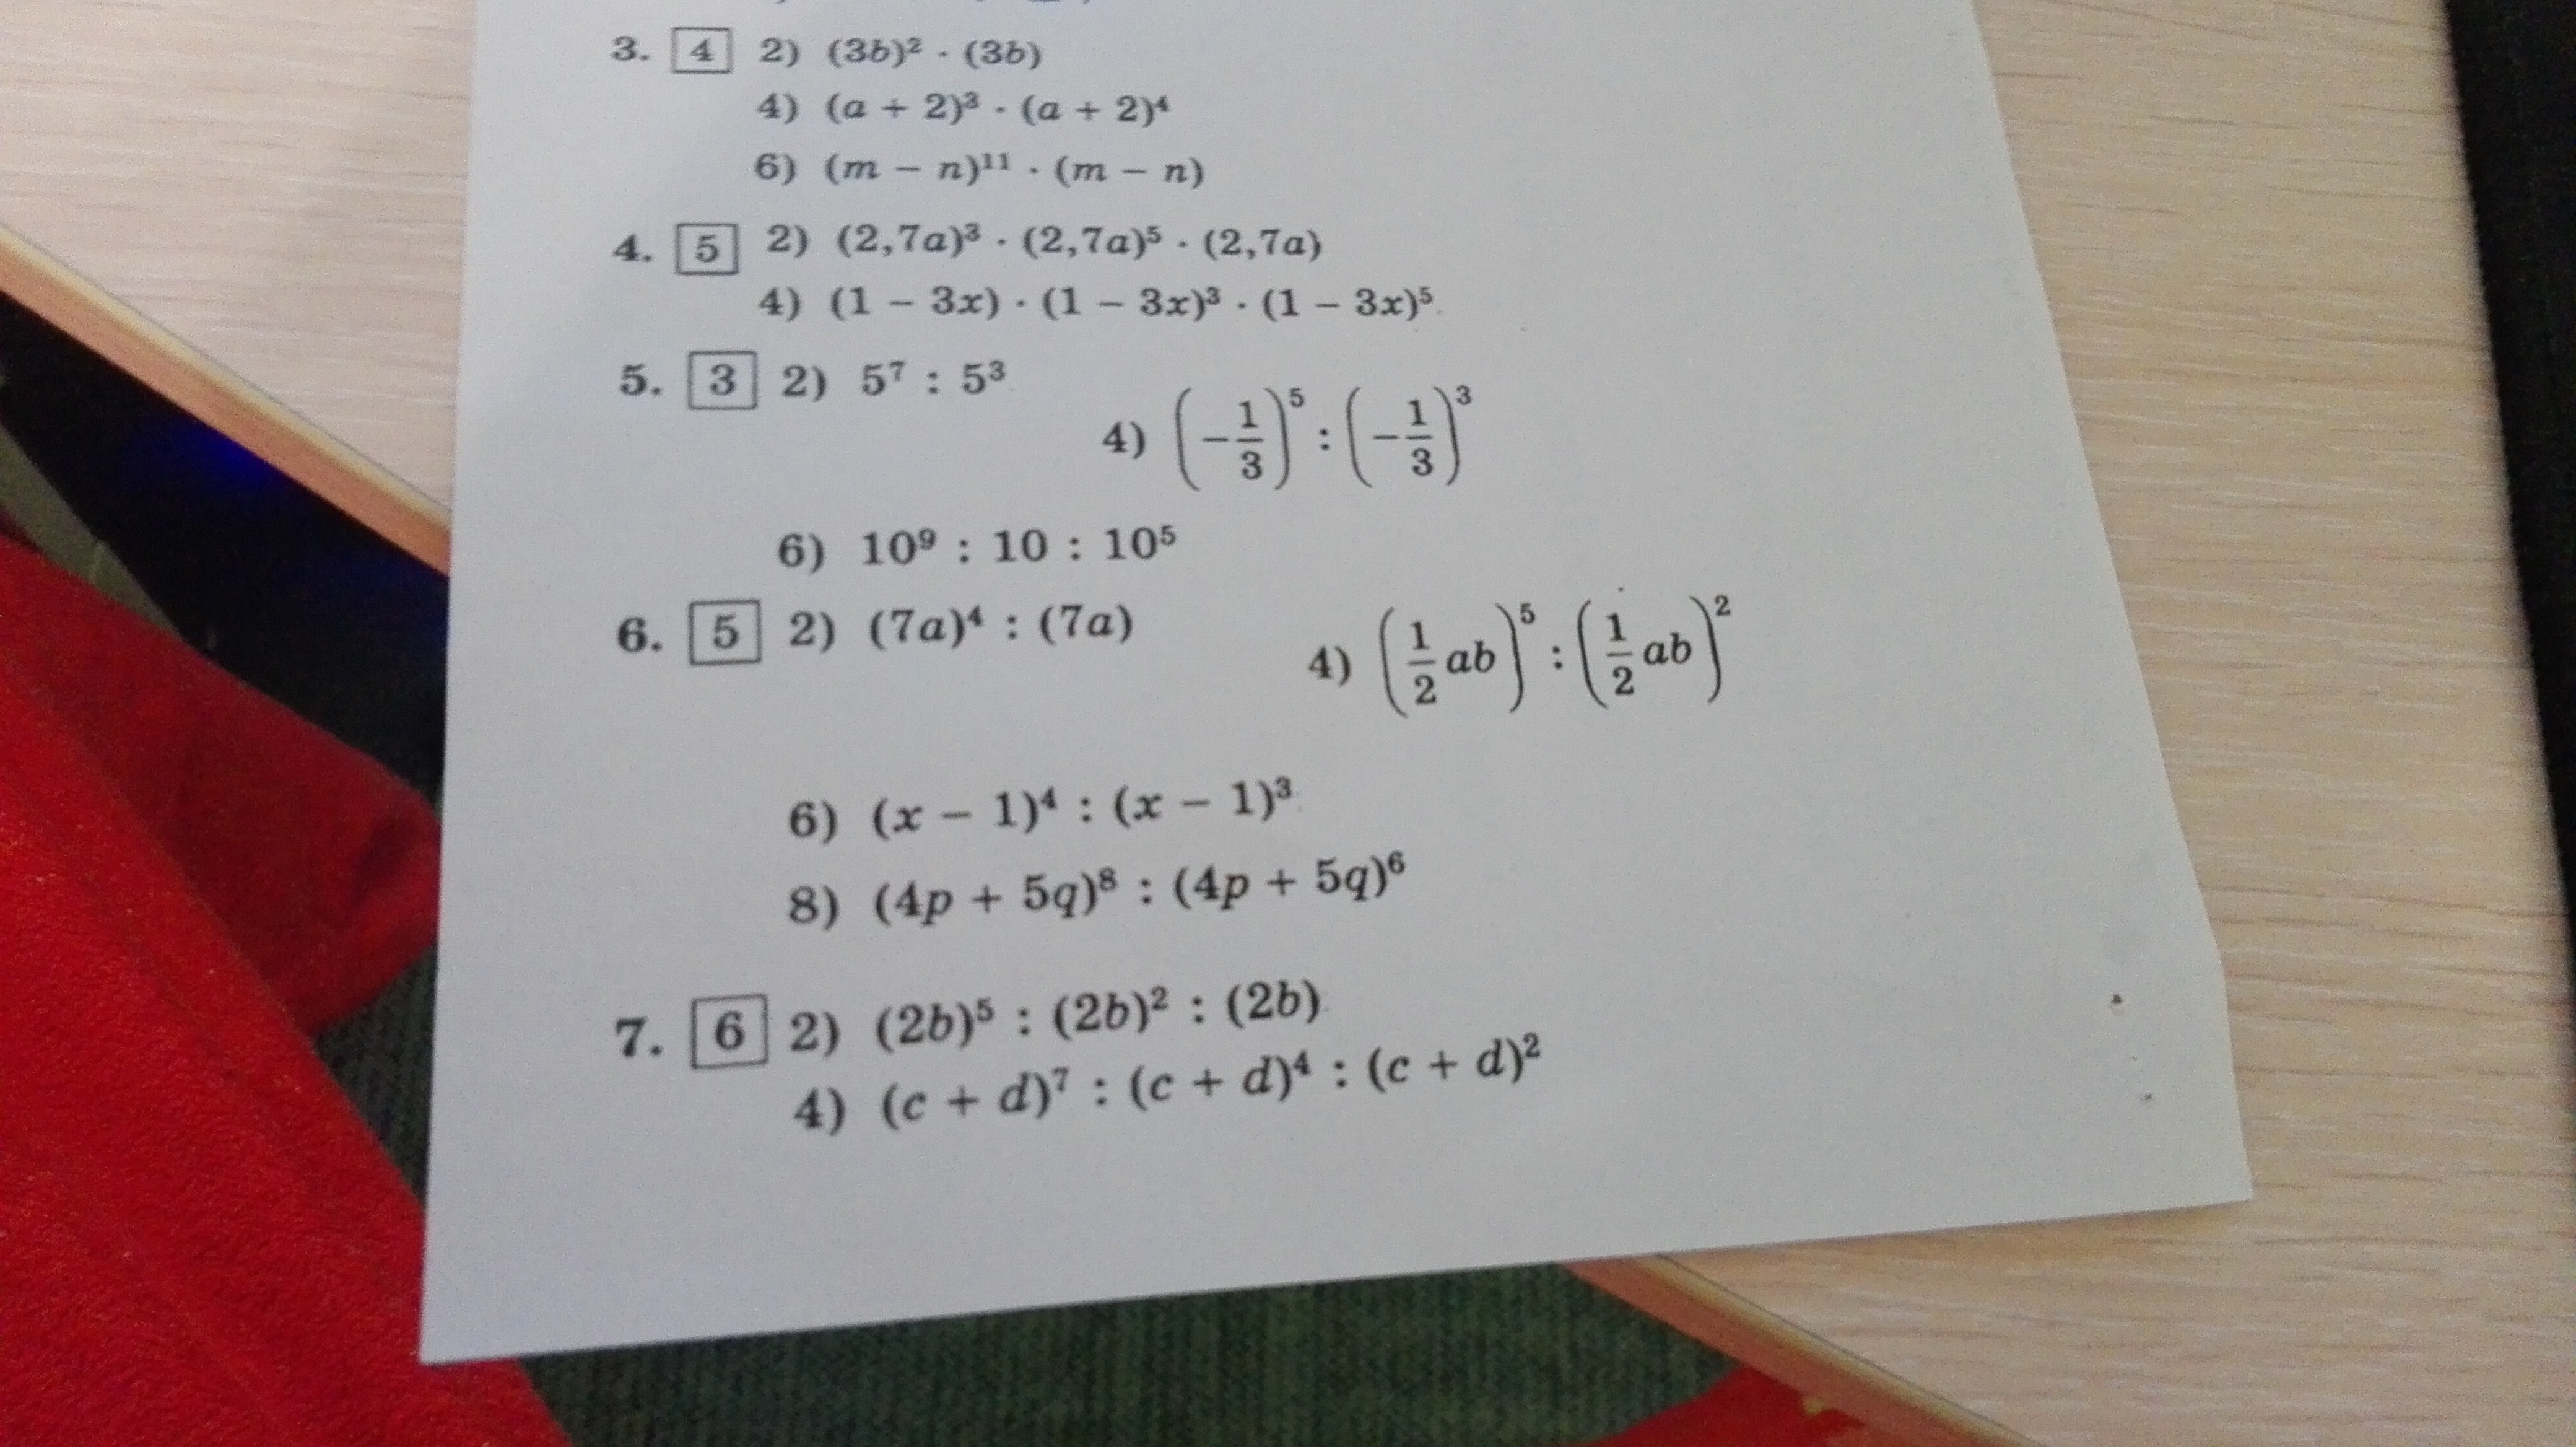 3. 4 2) (3b)² · (3b)
4) (a + 2)³ · (a + 2)⁴
6) (m − n)¹¹ · (m − n)
4. 5 2) (2,7a)³ · (2,7a)⁵ · (2,7a)
4) (1 − 3x) · (1 − 3x)³ · (1 − 3x)⁵
5. 3 2) 5⁷ : 5³
4) (−1/3)⁵ : (−1/3)³
6) 10⁹ : 10 : 10⁵
6. 5 2) (7a)⁴ : (7a)
4) (1/2 ab)⁵ : (1/2 ab)²
6) (x − 1)⁴ : (x − 1)³
8) (4p + 5q)⁸ : (4p + 5q)⁶
7. 6 2) (2b)⁵ : (2b)² : (2b)
4) (c + d)⁷ : (c + d)⁴ : (c + d)²